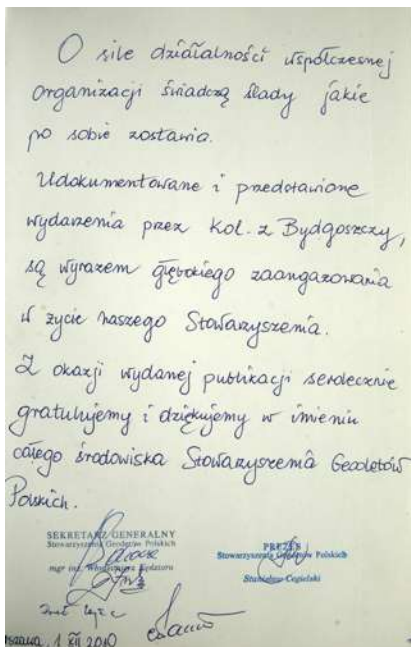 O sile działalności współczesnej
organizacji świadczą ślady jakie
po sobie zostawia.
Udokumentowane i przedstawione
wydarzenia przez Kol. z Bydgoszczy,
są wyrazem głębokiego zaangażowania
w życie naszego Stowarzyszenia.
Z okazji wydanej publikacji serdecznie
gratulujemy i dziękujemy w imieniu
całego środowiska Stowarzyszenia Geodetów
Polskich.
SEKRETARZ GENERALNY
Stowarzyszenia Geodetów Polskich
mgr inż. Włodzimierz Kędziora
PREZES
Stowarzyszenia Geodetów Polskich
Stanisław Cegielski
1 XII 2010